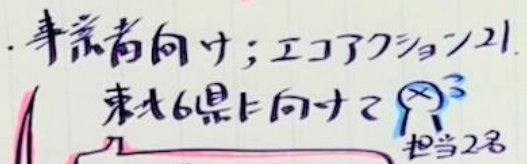 ・事業者向け；エコアクション21.
東北6県に向けて
担当2名